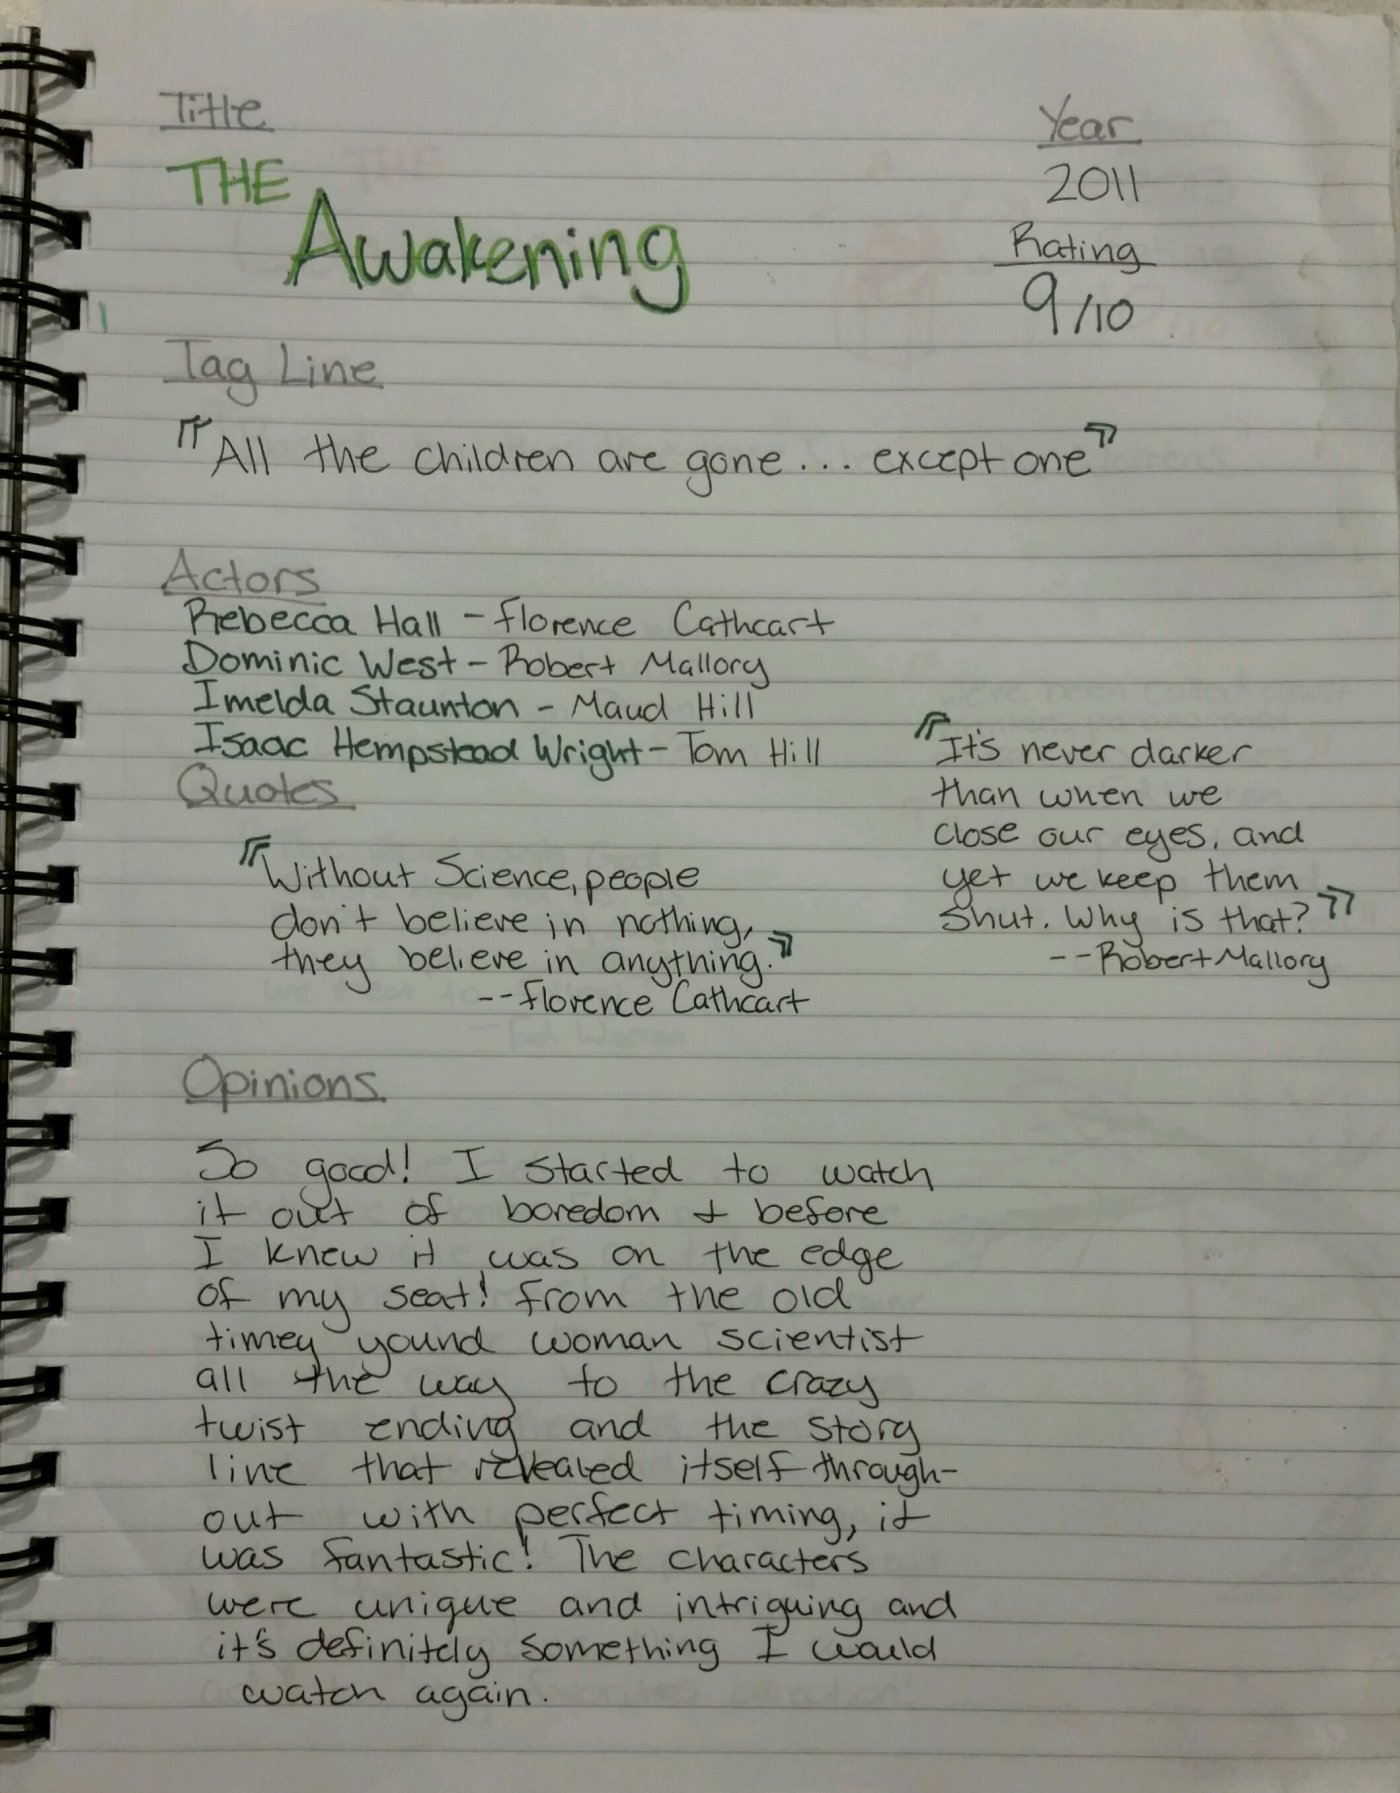 Title
THE
Awakening
Year
2011
Rating
9/10
Tag Line
"All the children are gone... except one"
Actors
Rebecca Hall - Florence Cathcart
Dominic West - Robert Mallory
Imelda Staunton - Maud Hill
Isaac Hempstead Wright - Tom Hill
Quotes
"Without Science, people
don't believe in nothing,
they believe in anything."
--Florence Cathcart
"It's never darker
than when we
close our eyes, and
yet we keep them
shut. Why is that?"
--Robert Mallory
Opinions
So good! I started to watch
it out of boredom & before
I knew it was on the edge
of my seat! From the old
timey yound woman scientist
all the way to the crazy
twist ending and the story
line that revealed itself through-
out with perfect timing, it
was fantastic! The characters
were unique and intriguing and
it's definitely something I would
watch again.